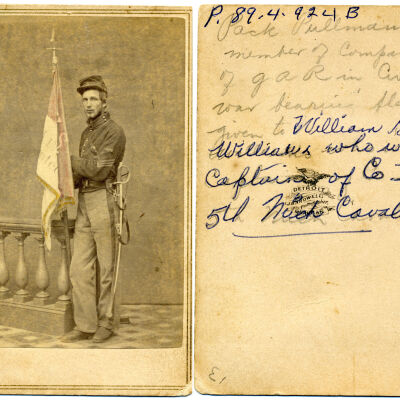 P. 89.4.924B
Pack Pullman
member of Compan
of G A R in Civ
war bearing fla
given to William
Williams who w
Captain of Co
DETROIT
5th Mich Caval
E1